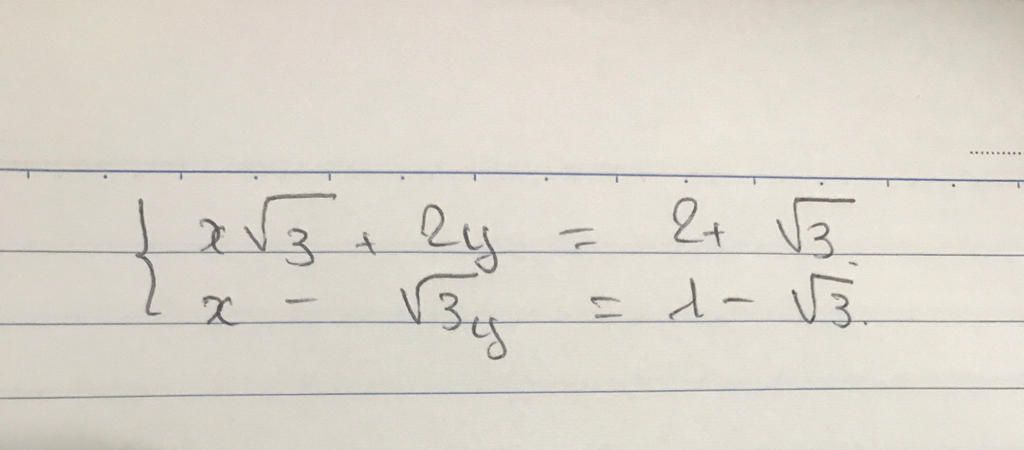 x√3 + 2y = 2 + √3
x - √3y = 1 - √3.